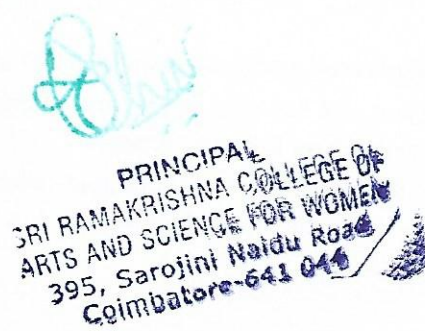 PRINCIPAL
SRI RAMAKRISHNA COLLEGE OF
ARTS AND SCIENCE FOR WOMEN
395, Sarojini Naidu Road
Coimbatore-641 044